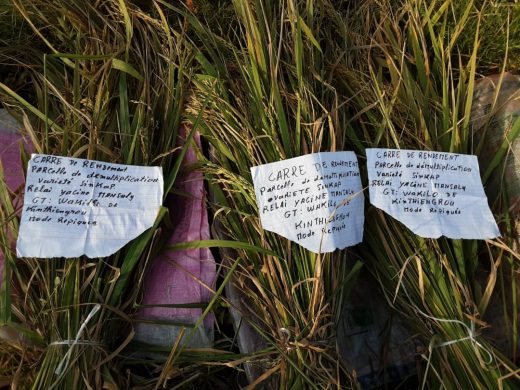 CARRE DE RENDEMENT
PARCELLE de démultiplication
Variété SINKAP
Relai yacine MANSALY
GT: WAKILO DE
Kinthiengrou
Mode Repiqué
CARRE DE RENDEMENT
PARCELLE de démultiplication
VARIETE SINKAP
RELAI YACINE MANSALY
GT: WAKILO DE
KINTHIENGROU
Mode Repiqué
CARRE DE RENDEMENT
PARCELLE de démultiplication
Variété SINKAP
RELAI YACINE MANSALY
GT: WAKILO DE
KINTHIENGROU
Mode Repiqué